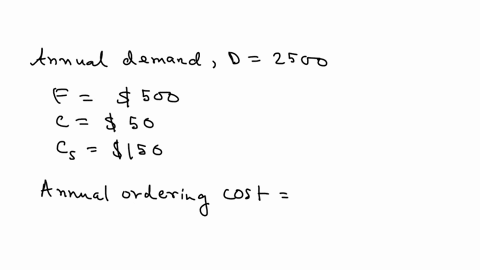 Annual demand, D = 2500
F = $ 500
C = $ 50
Cs = $150
Annual ordering cost =